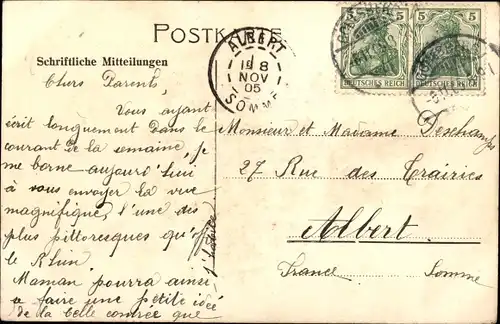 POSTKARTE
Schriftliche Mitteilungen
ALBERT
18
NOV
05
SOMME
5 5
5 5
DEUTSCHES REICH
DEUTSCHES REICH
Chers Parents,
Vous ayant
écrit longuement dans le
courant de la semaine, je
me borne aujourd'hui
à vous envoyer la vue
magnifique, l'une des
plus pittoresques qu'
le Rhin
Maman pourra ainsi
faire une petite idée
de la belle contrée que
Monsieur et Madame Deschamps
27 Rue des
Albert
France Somme